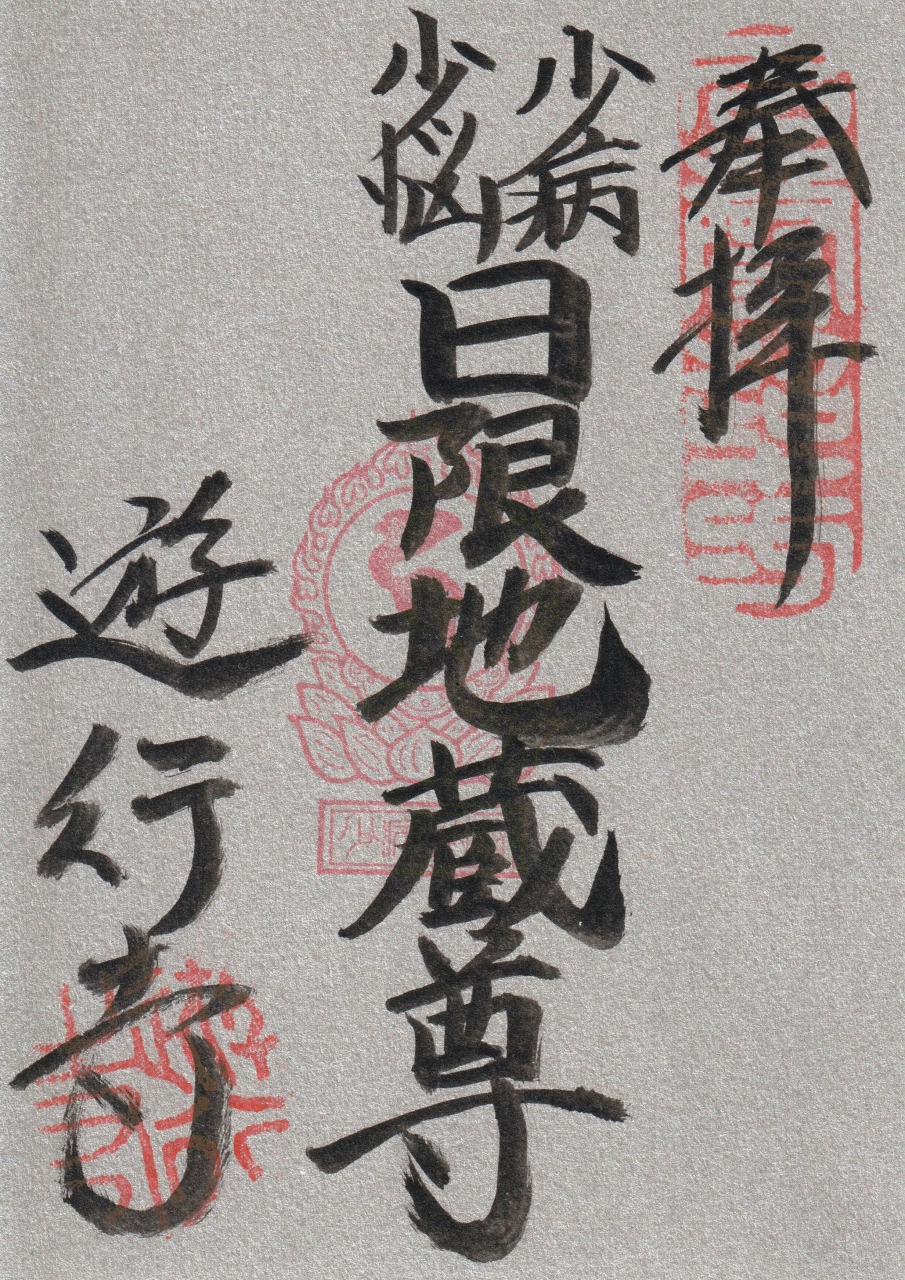 奉拝
少病
少悩
日限地蔵尊
遊行寺